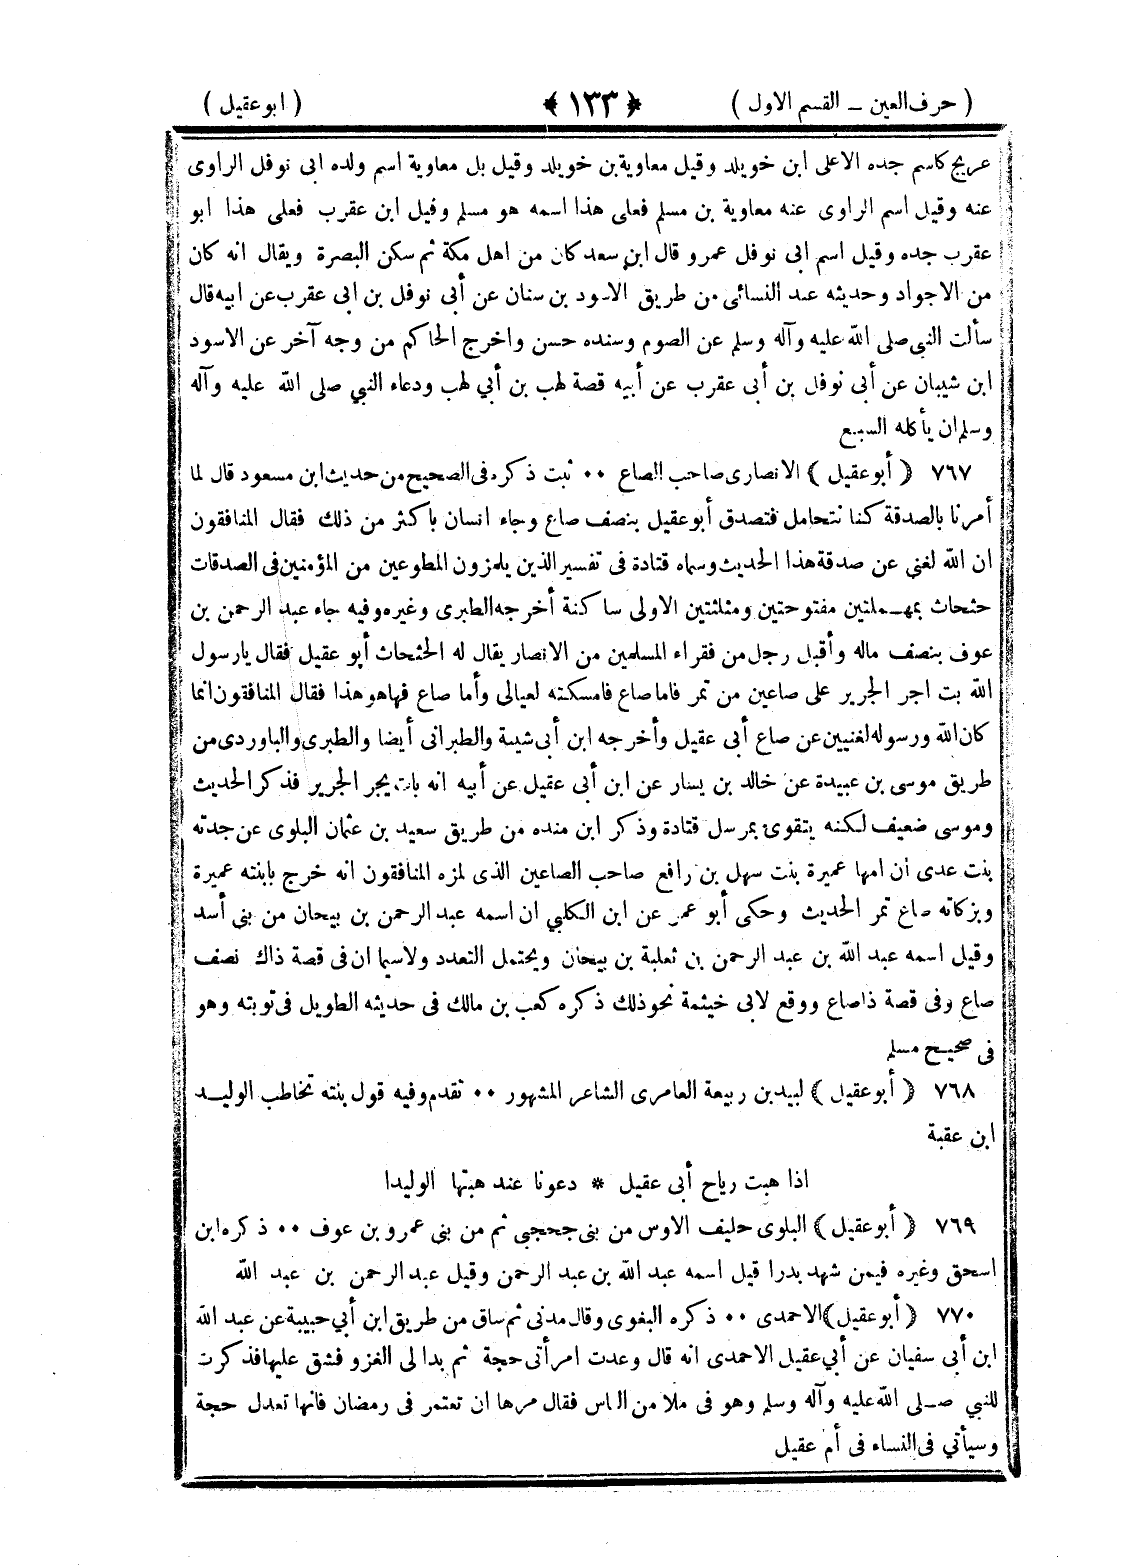 ( حرف العين – القسم الاول ) ﴿ ١٣٣ ﴾ ( ابو عقيل )
عريج كاسم جده الاعلى ابن خويلد وقيل معاوية بن خويلد وقيل بل معاوية اسم ولده ابى نوفل الراوى
عنه وقيل اسم الراوى عنه معاوية بن مسلم فعلى هذا اسمه هو مسلم وقيل ابن عقرب فعلى هذا ابو
عقرب جده وقيل اسم ابى نوفل عمرو قال ابن سعد كان من اهل مكة ثم سكن البصرة ويقال انه كان
من الاجواد وحديثه عند النسائى من طريق الاسود بن سنان عن أبى نوفل بن ابى عقرب عن ابيه قال
سألت النبى صلى الله عليه وآله وسلم عن الصوم وسنده حسن واخرج الحاكم من وجه آخر عن الاسود
ابن شيبان عن أبى نوفل بن أبى عقرب عن أبيه قصة لهب بن أبي لهب ودعاء النبي صلى الله عليه وآله
وسلم ان يأكله السبع
٧٦٧ ﴿ أبو عقيل ﴾ الانصارى صاحب الصاع ٠٠ ثبت ذكره فى الصحيح من حديث ابن مسعود قال لما
أمرنا بالصدقة كنا نتحامل فتصدق أبو عقيل بنصف صاع وجاء انسان باكثر من ذلك فقال المنافقون
ان الله لغني عن صدقة هذا الحديث وسماه قتادة فى تفسير الذين يلمزون المطوعين من المؤمنين فى الصدقات
حثحاث بمهـملتين مفتوحتين ومثلثتين الاولى ساكنة أخرجه الطبرى وغيره وفيه جاء عبد الرحمن بن
عوف بنصف ماله وأقبل رجل من فقراء المسلمين من الانصار يقال له الحثحاث أبو عقيل فقال يارسول
الله بت اجر الجرير على صاعين من تمر فاما صاع فامسكته لعيالى وأما صاع فهاهو هذا فقال المنافقون انما
كان الله ورسوله لغنيين عن صاع أبى عقيل وأخرجه ابن أبى شيبة والطبرانى أيضا والطبرى والباوردى من
طريق موسى بن عبيدة عن خالد بن يسار عن ابن أبى عقيل عن أبيه انه بات يجر الجرير فذكر الحديث
وموسى ضعيف لكنه يتقوى بمرسل قتادة وذكر ابن منده من طريق سعيد بن عثمان البلوى عن جدته
بنت عدى ان امها عميرة بنت سهل بن رافع صاحب الصاعين الذى لمزه المنافقون انه خرج بابنته عميرة
وبزكاته صاع تمر الحديث وحكى أبو عمر عن ابن الكلبي ان اسمه عبد الرحمن بن بيحان من بنى أسد
وقيل اسمه عبد الله بن عبد الرحمن بن ثعلبة بن بيحان ويحتمل التعدد ولاسيما ان فى قصة ذاك نصف
صاع وفى قصة ذا صاع ووقع لابى خيثمة نحو ذلك ذكره كعب بن مالك فى حديثه الطويل فى توبته وهو
فى صحيح مسلم
٧٦٨ ﴿ أبو عقيل ﴾ لبيد بن ربيعة العامرى الشاعر المشهور ٠٠ تقدم وفيه قول بنته تخاطب الوليـد
ابن عقبة
اذا هبت رياح أبى عقيل * دعونا عند هبتها الوليدا
٧٦٩ ﴿ أبو عقيل ﴾ البلوى حليف الاوس من بنى جحجبي ثم من بنى عمرو بن عوف ٠٠ ذكره ابن
اسحق وغيره فيمن شهد بدرا قيل اسمه عبد الله بن عبد الرحمن وقيل عبد الرحمن بن عبد الله
٧٧٠ ﴿ أبو عقيل ﴾ الاحمدى ٠٠ ذكره البغوى وقال مدنى ثم ساق من طريق ابن أبي حبيبة عن عبد الله
ابن أبى سفيان عن أبي عقيل الاحمدى انه قال وعدت امرأتى حجة ثم بدا لى الغزو فشق عليها فذكرت
للنبي صـلى الله عليه وآله وسلم وهو فى ملا من الناس فقال مرها ان تعتمر فى رمضان فانها تعدل حجة
وسيأتي فى النساء فى أم عقيل